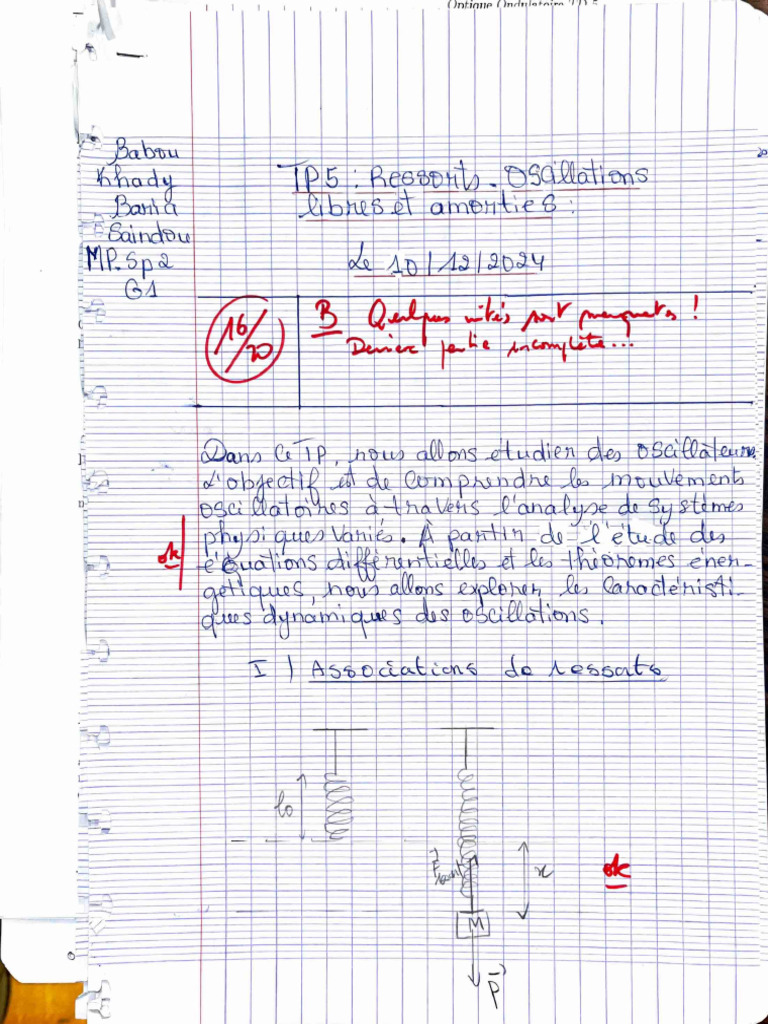 Optique Ondulatoire TD 5
Babou
Khady
Barha
Saindou
MP.Sp2
G1
TP5 : Ressorts. Oscillations
libres et amorties :
Le 10/12/2024
16/20
B Quelques unités sont manquantes !
Dernière partie incomplète...
Dans ce TP, nous allons étudier des oscillateurs
L'objectif est de comprendre les mouvements
oscillatoires à travers l'analyse de systèmes
physiques variés. À partir de l'étude des
équations différentielles et les théorèmes éner-
gétiques, nous allons explorer les caractéristi-
ques dynamiques des oscillations.
ok
I ) Associations de ressorts
l0
x
ok
M
P